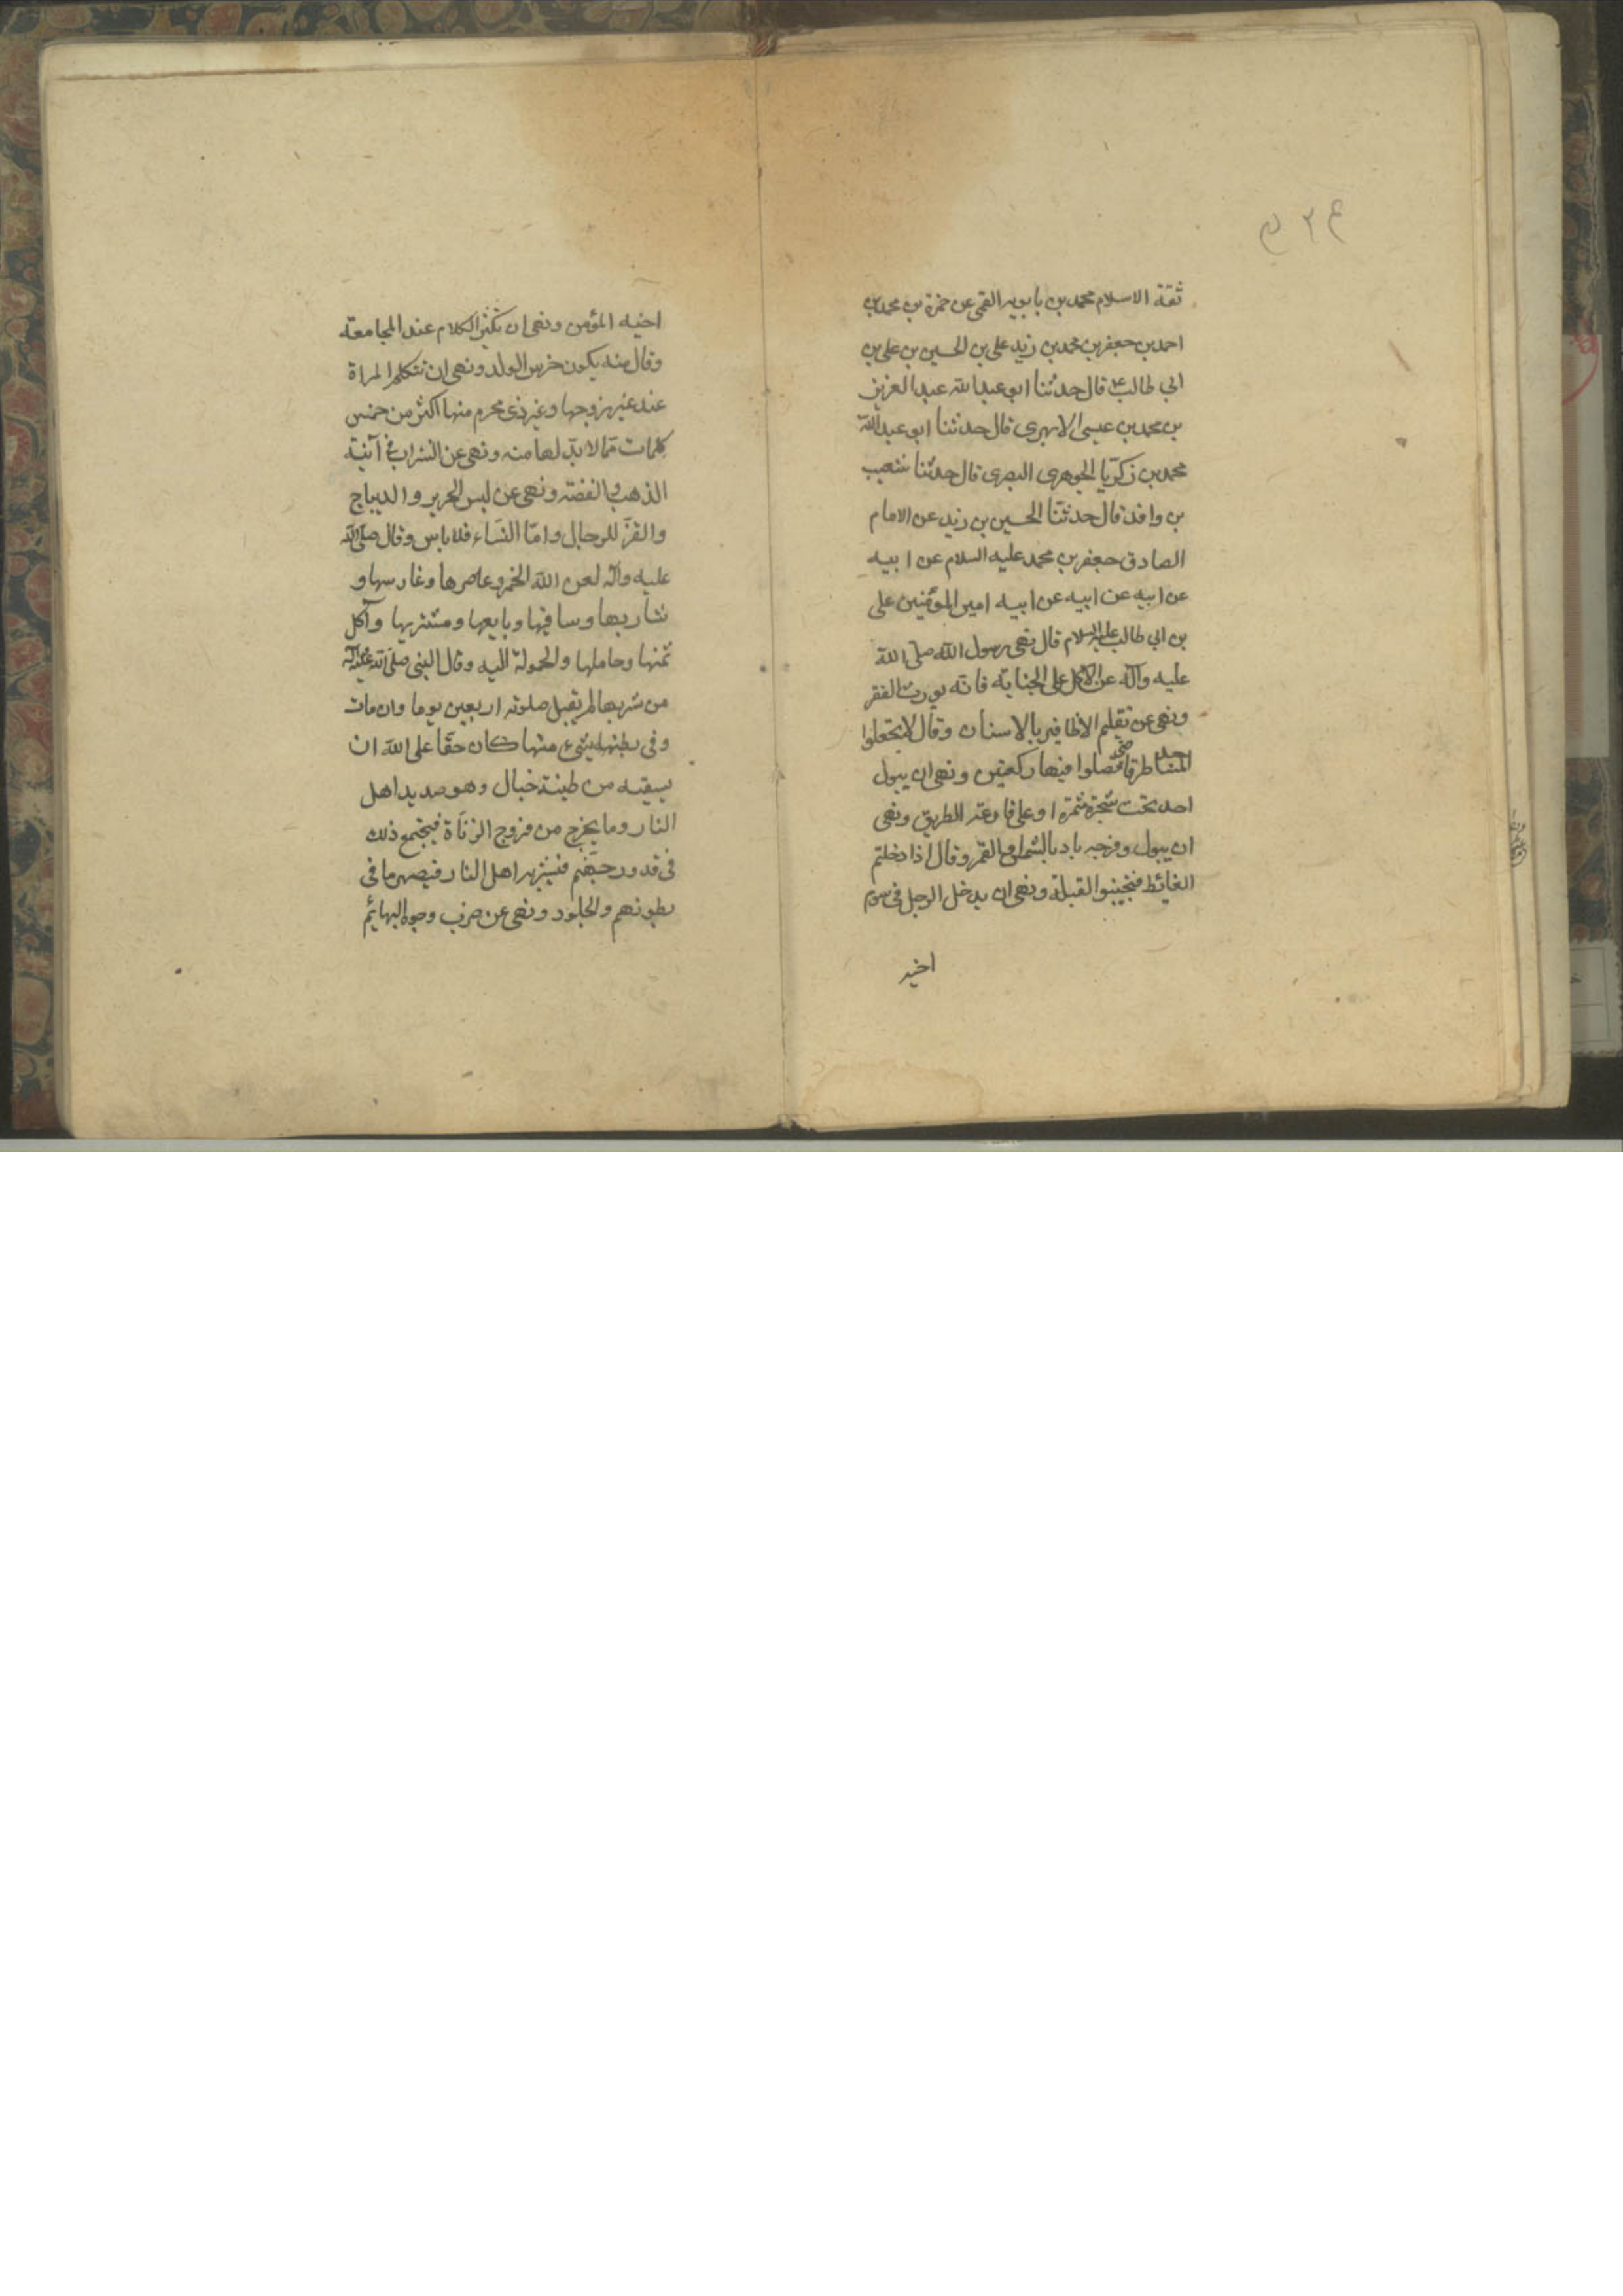 ثقة الاسلام محمد بن بابويه القمى عن حمزة بن محمد بن
احمد بن جعفر بن محمد بن زيد على بن الحسين بن على بن
ابى طالب ع قال حدثنا ابو عبد الله عبد العزيز
بن محمد بن عيسى الابهرى قال حدثنا ابو عبد الله
محمد بن زكريّا الجوهرى البصرى قال حدثنا شعيب
بن واقد قال حدثنا الحسين بن زيد عن الامام
الصادق جعفر بن محمد عليه السلام عن ابيه
عن ابيه عن ابيه عن ابيه امير المؤمنين على
بن ابى طالب عليه السلام قال نهى رسول الله صلى الله
عليه وآله عن الاكل على الجنابة فانه يورث الفقر
ونهى عن تقليم الاظافير بالاسنان وقال لا تجعلوا
المساجد طرقا حتى تصلوا فيها ركعتين ونهى ان يبول
احد تحت شجرة مثمرة او على قارعة الطريق ونهى
ان يبول وفرجه باد بالشمس او القمر وقال اذا دخلتم
الغائط فتجنبوا القبلة ونهى ان يدخل الرجل فى سوم
اخيه
اخيه المؤمن ونهى ان يكثر الكلام عند المجامعة
وقال منه يكون خرس الولد ونهى ان تتكلم المراة
عند غير زوجها وغير ذى محرم منها اكثر من خمس
كلمات ممّا لا بدّ لها منه ونهى عن الشراب فى آنية
الذهب والفضة ونهى عن لبس الحرير والديباج
والقزّ للرجال وامّا النّساء فلا باس وقال صلّى الله
عليه وآله لعن الله الخمر وعاصرها وغارسها و
شاربها وساقيها وبايعها ومشتريها وآكل
ثمنها وحاملها والحمولة اليه وقال النبى صلّى الله عليه وآله
من شربها لم يقبل صلوته اربعين يوما وان مات
وفى بطنه شىء منها كان حقّا على الله ان
يسقيه من طينة خبال وهو صديد اهل
النار وما يخرج من فروج الزناة فيجتمع ذلك
فى قدور جهنّم فيشربه اهل النار فيصهر ما فى
بطونهم والجلود ونهى عن ضرب وجوه البهائم